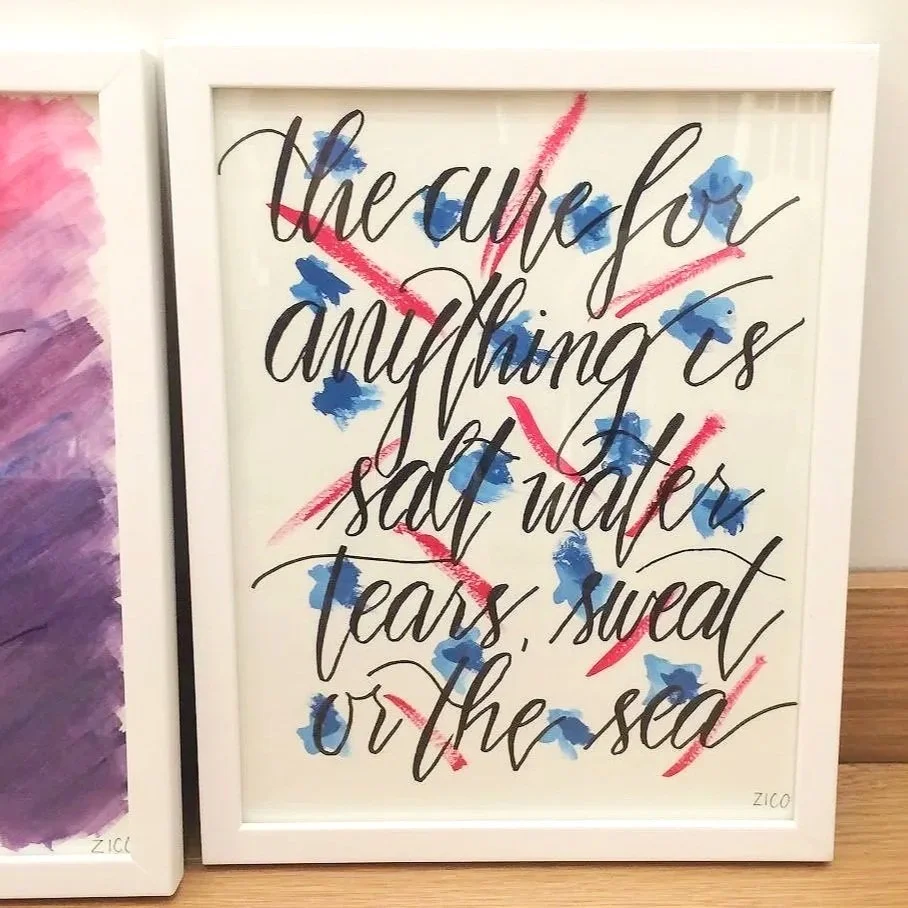 the cure for
anything is
salt water,
tears, sweat
or the sea
ZICO
ZICO